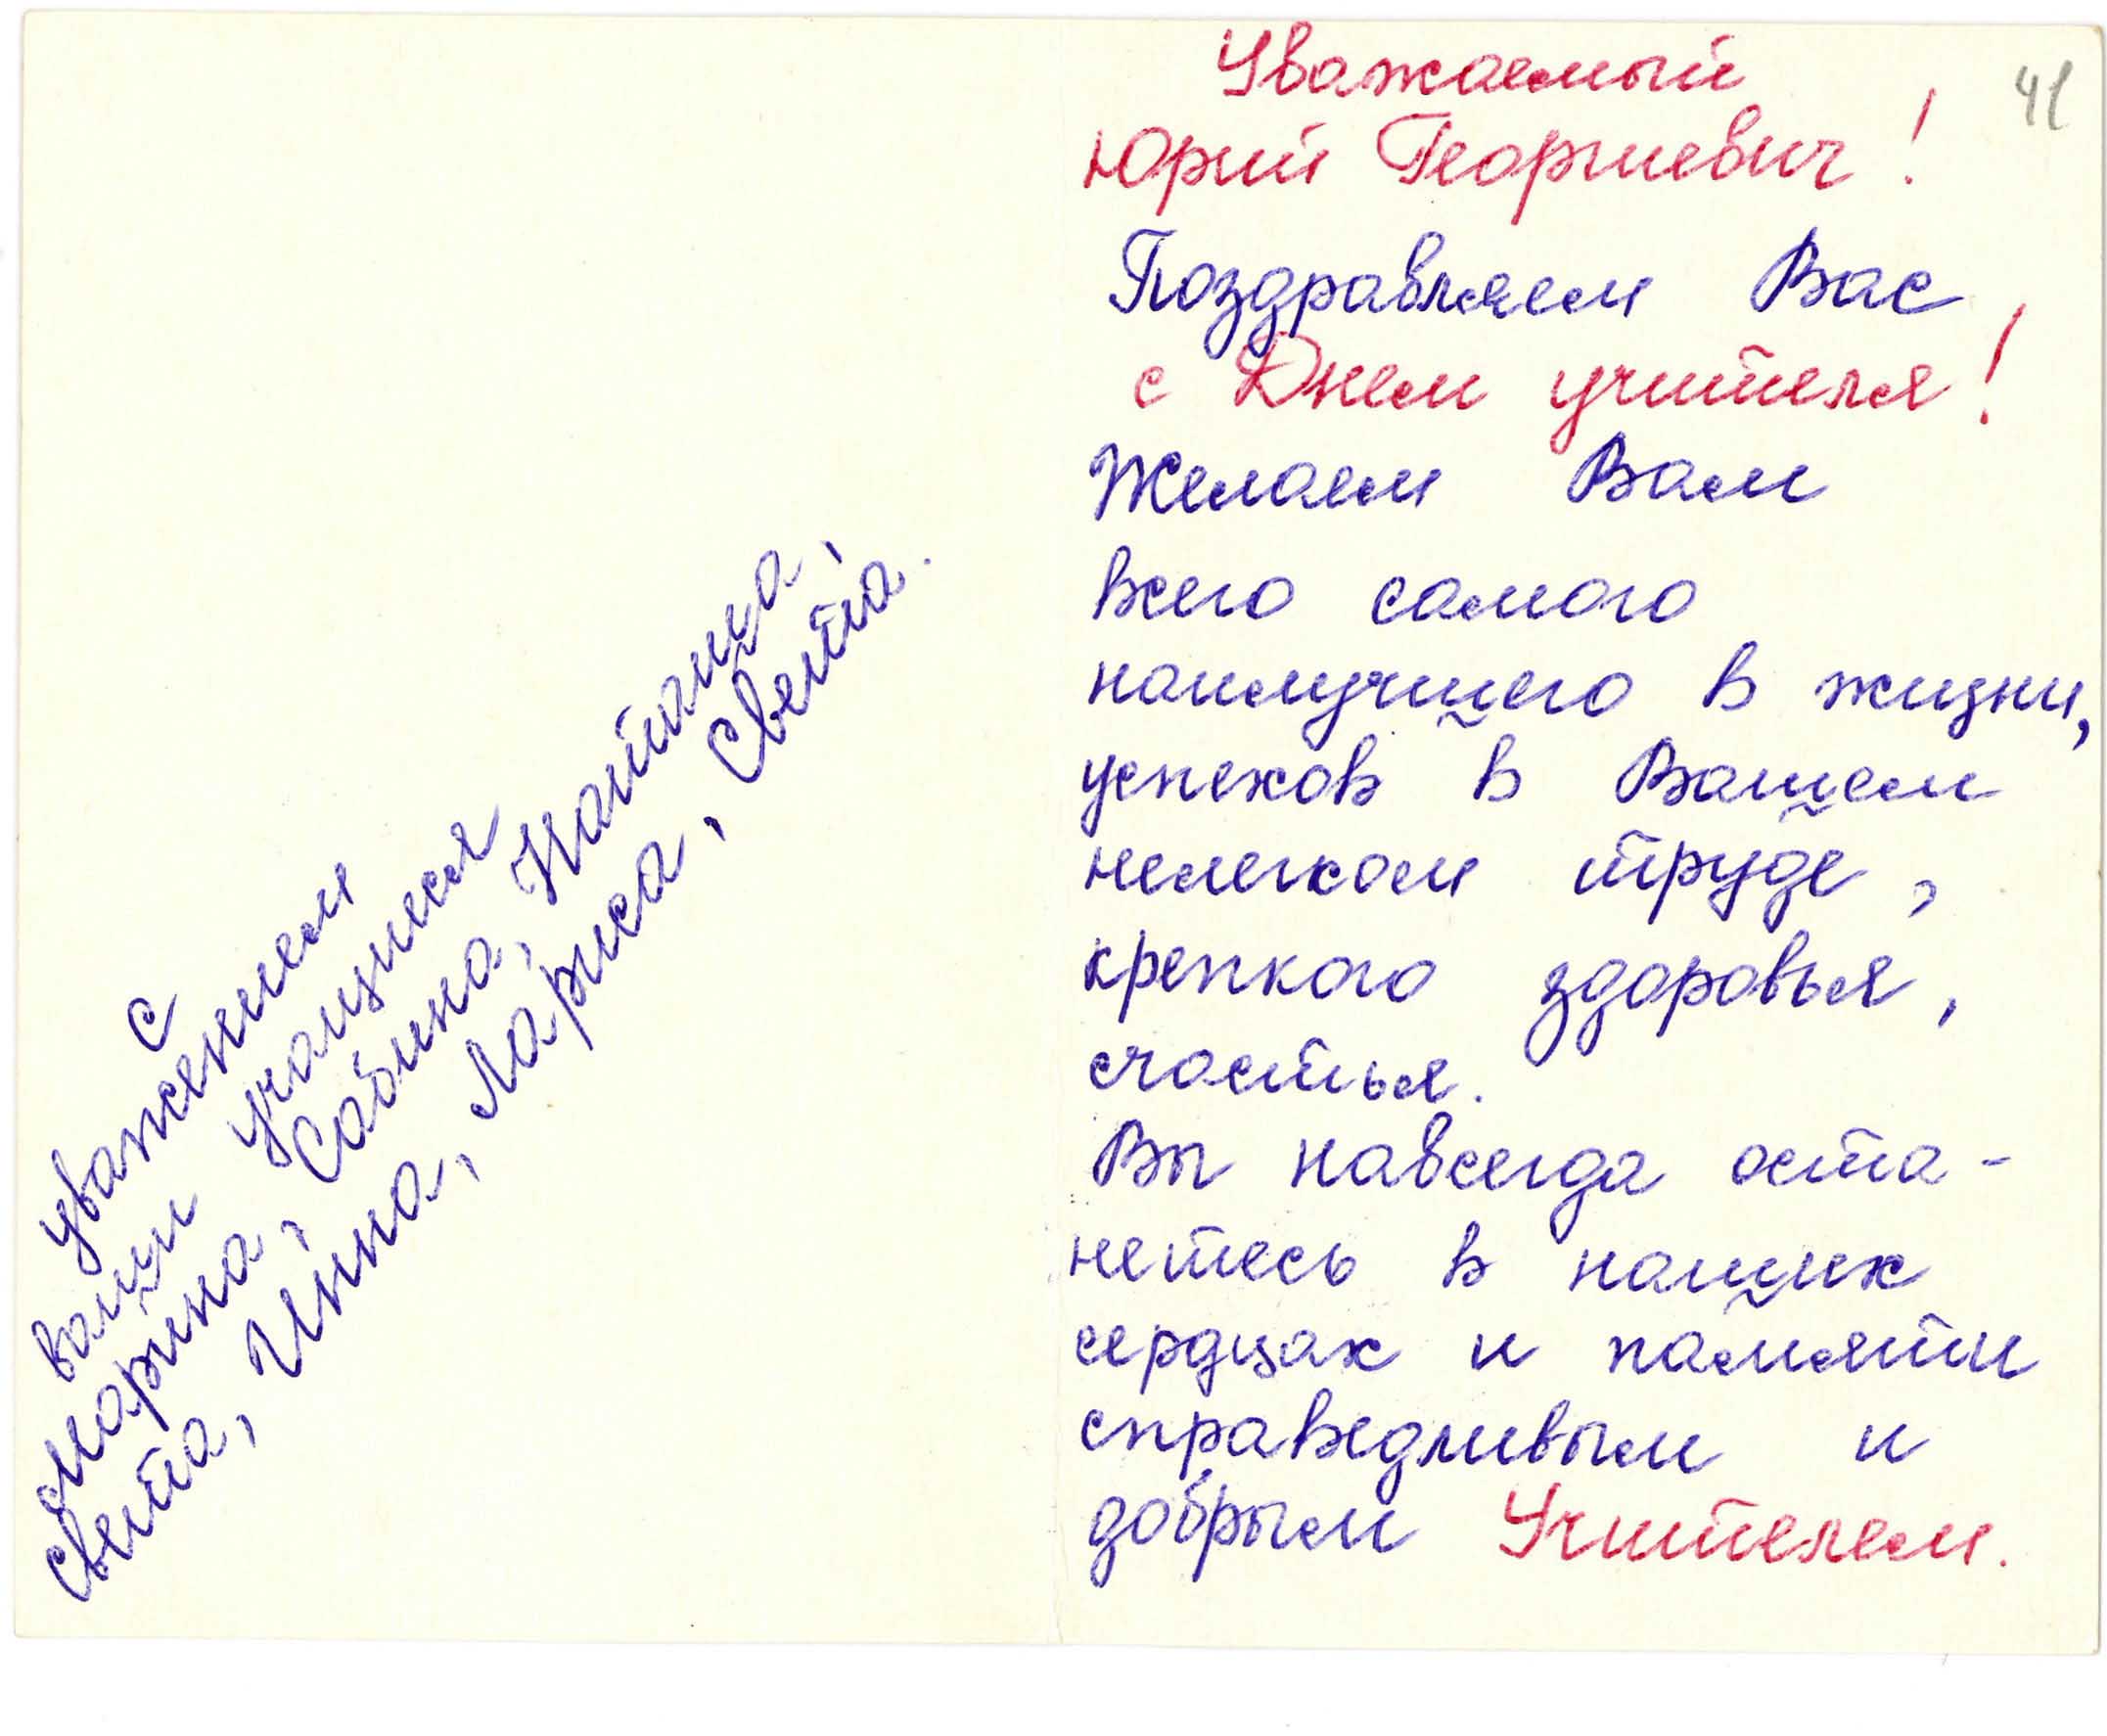 Уважаемый
Юрий Георгиевич!
41
Поздравляем Вас
с Днем учителя!
Желаем Вам
всего самого
наилучшего в жизни,
успехов в Вашем
нелегком труде,
крепкого здоровья,
счастья.
Вы навсегда оста-
нетесь в наших
сердцах и памяти
справедливым и
добрым Учителем.
С
уважением
ваши учащиеся
Марина, Сабина, Наташа,
Света, Инна, Лариса, Света.